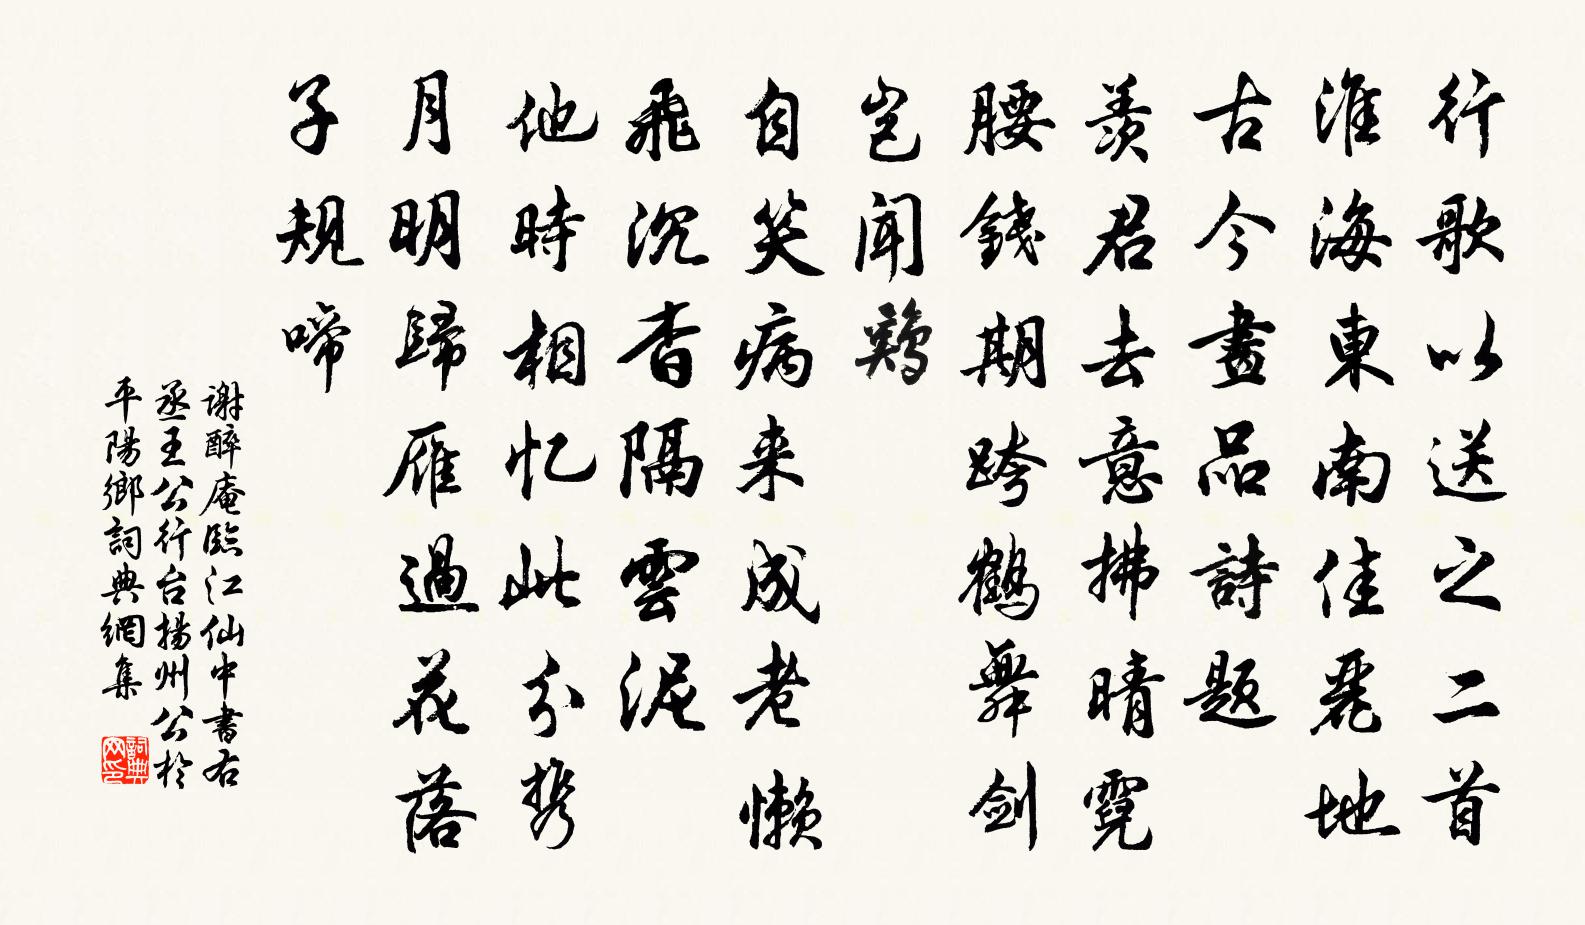 行歌以送之二首
淮海東南佳麗地
古今畫品詩題
羨君去意拂晴霓
腰錢期跨鶴舞剑
岂闻鷄
自笑病来成老懒
飛沉杳隔雲泥
他時相忆此分携
月明歸雁過花落
子規啼
谢醉庵臨江仙中書右
丞王公行台揚州公於
平陽鄉詞典網集
詞典网印